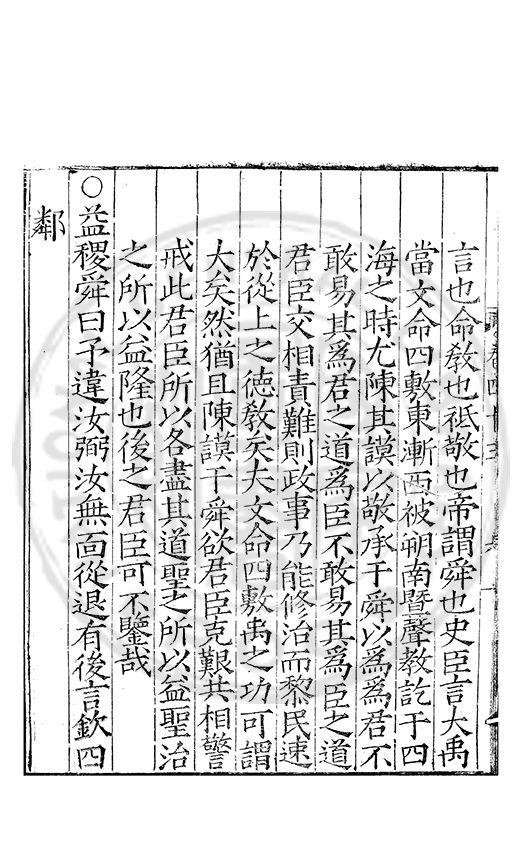 言也命敎也祗敬也帝謂舜也史臣言大禹
當文命四敷東漸西被朔南暨聲教訖于四
海之時尤陳其謨以敬承于舜以爲爲君不
敢易其爲君之道爲臣不敢易其爲臣之道
君臣交相責難則政事乃能修治而黎民速
於從上之德敎矣夫文命四敷禹之功可謂
大矣然猶且陳謨于舜欲君臣克艱共相警
戒此君臣所以各盡其道聖之所以益聖治
之所以益隆也後之君臣可不鑒哉
○益稷舜曰予違汝弼汝無面從退有後言欽四
鄰